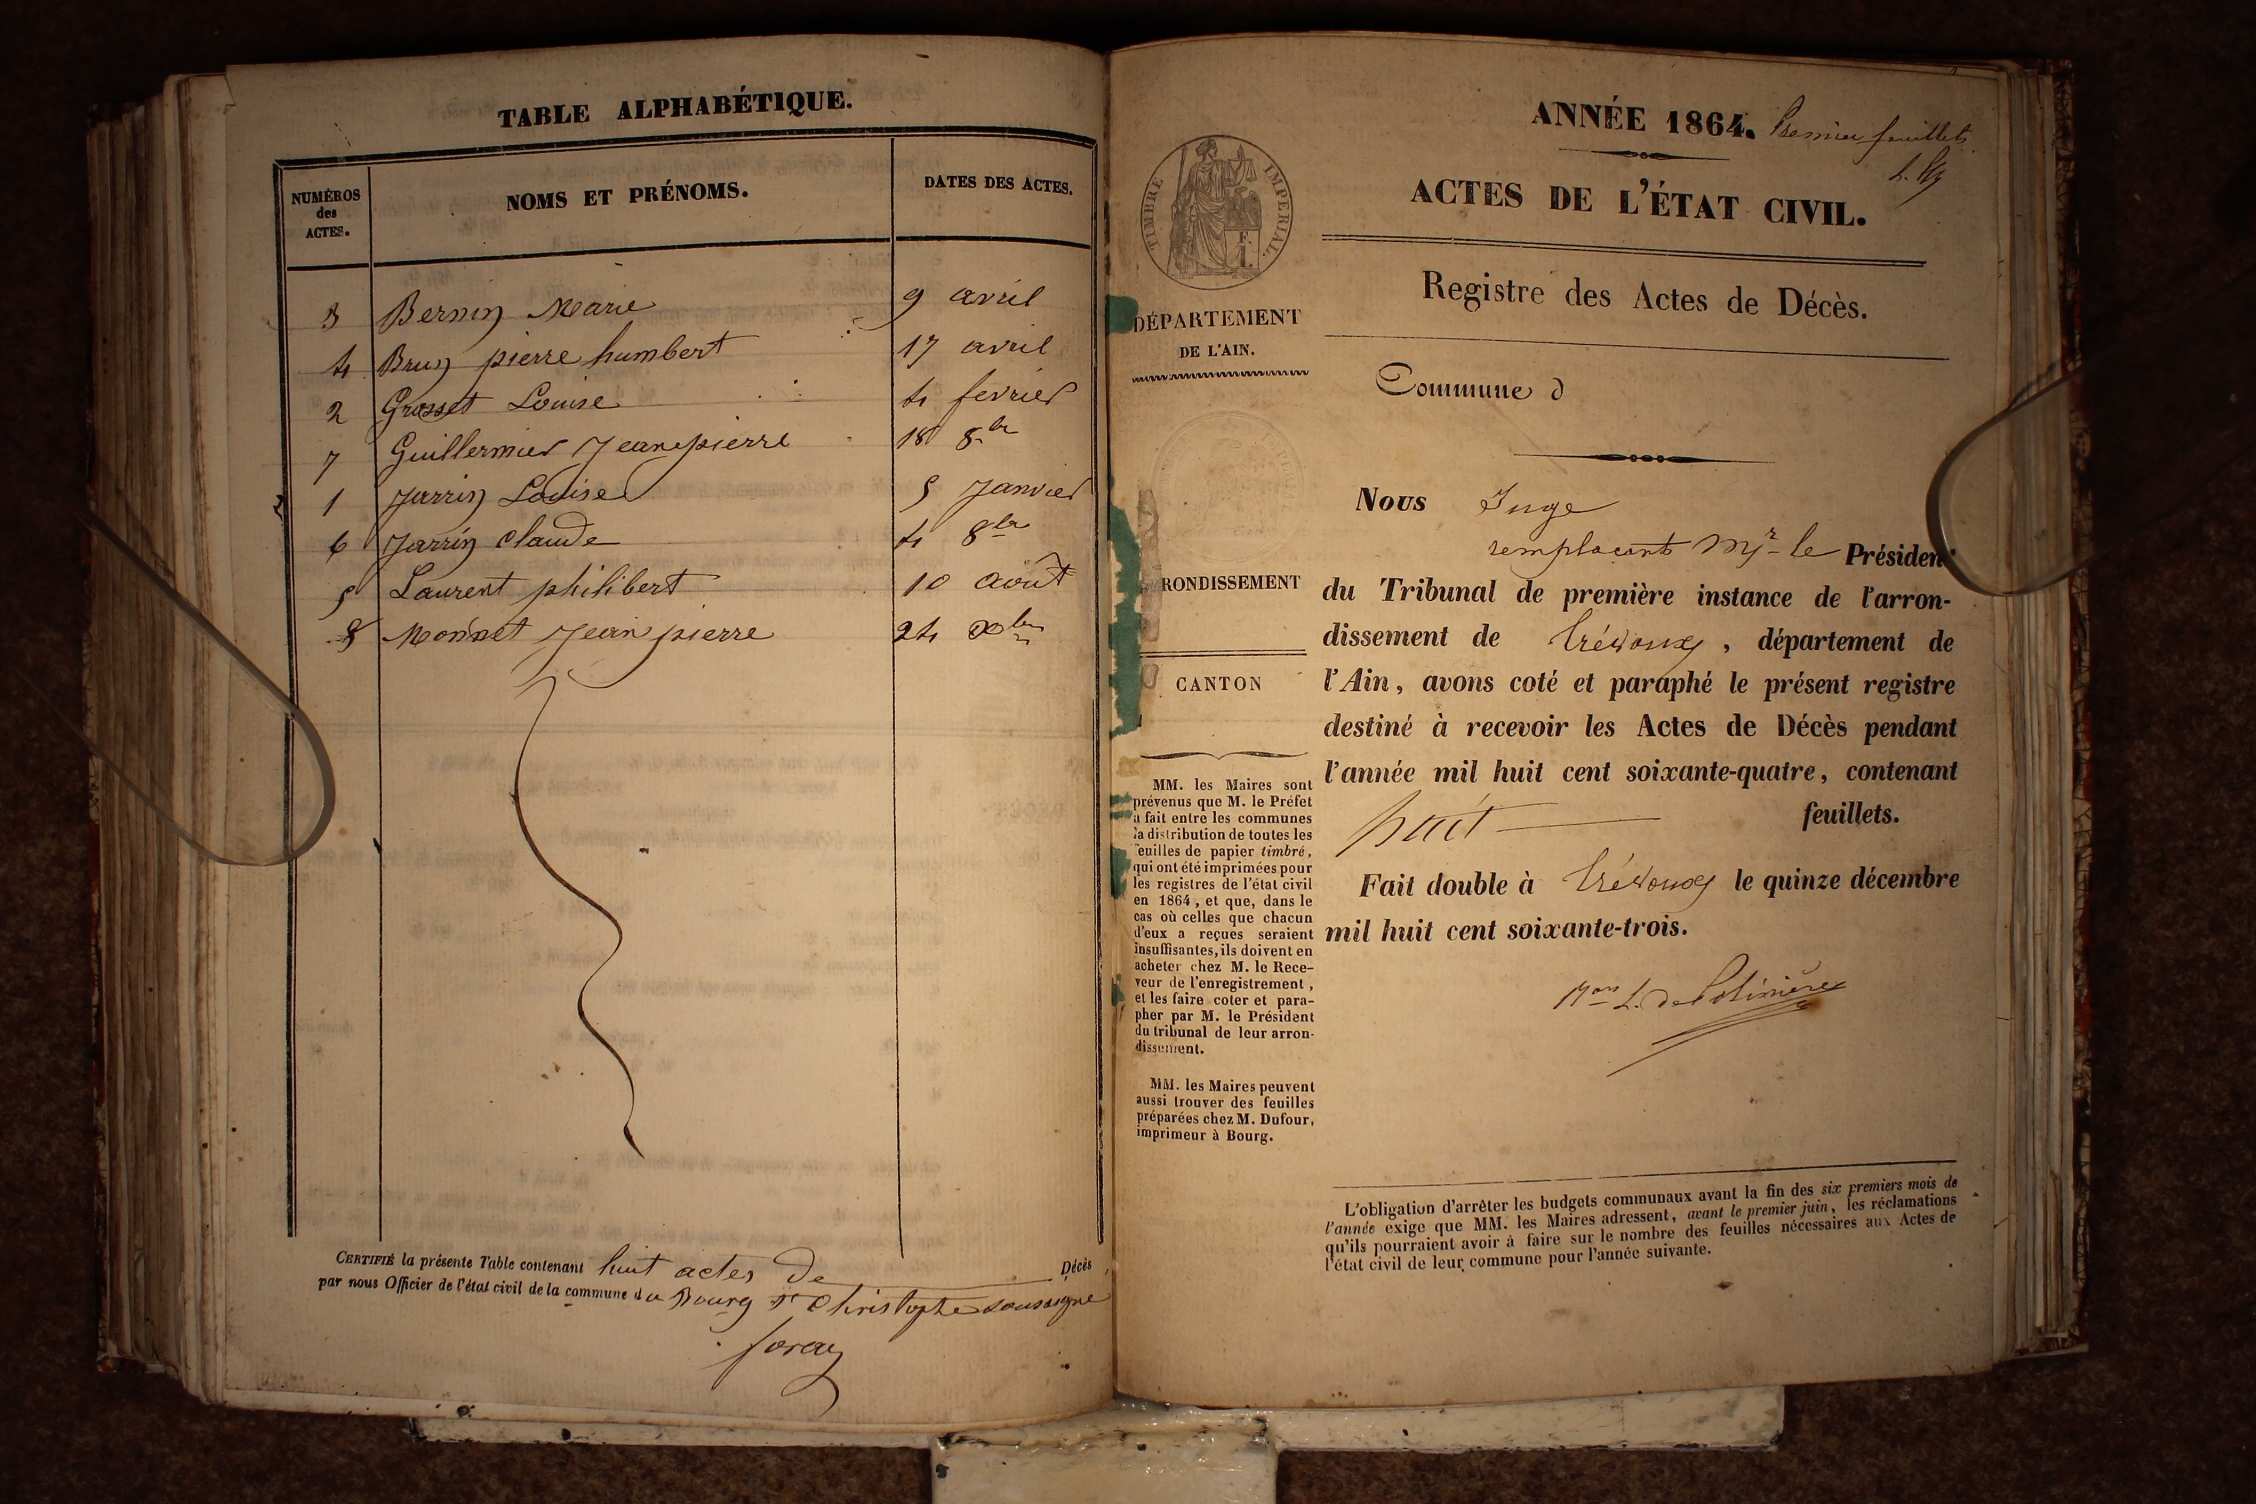 TABLE ALPHABÉTIQUE.
NUMÉROS
des
ACTES.
NOMS ET PRÉNOMS.
DATES DES ACTES.
3 Bernin Marie 9 avril
4 Brun pierre humbert 17 avril
2 Grosset Louise 4 fevrier
7 Guillermier Jeanpierre 18 8bre
1 Jarrin Louise 5 Janvier
6 Jarrin Claude 4 8bre
5 Laurent philibert 10 août
8 Monnet Jean pierre 24 Xbre
CERTIFIÉ la présente Table contenant huit actes de Décès
par nous Officier de l'état civil de la commune du Bourg St Christophe soussigné
foray
ANNÉE 1864. Premier feuillet.
ACTES DE L'ÉTAT CIVIL.
TIMBRE IMPERIAL.
DÉPARTEMENT
DE L'AIN.
RONDISSEMENT
CANTON
MM. les Maires sont
prévenus que M. le Préfet
a fait entre les communes
la distribution de toutes les
feuilles de papier timbré,
qui ont été imprimées pour
les registres de l'état civil
en 1864, et que, dans le
cas où celles que chacun
d'eux a reçues seraient
insuffisantes, ils doivent en
acheter chez M. le Rece-
veur de l'enregistrement,
et les faire coter et para-
pher par M. le Président
du tribunal de leur arron-
dissement.
MM. les Maires peuvent
aussi trouver des feuilles
préparées chez M. Dufour,
imprimeur à Bourg.
Registre des Actes de Décès.
Commune d
Nous Juge
remplaçant Mr le Président
du Tribunal de première instance de l'arron-
dissement de Trévoux, département de
l'Ain, avons coté et paraphé le présent registre
destiné à recevoir les Actes de Décès pendant
l'année mil huit cent soixante-quatre, contenant
huit feuillets.
Fait double à Trévoux le quinze décembre
mil huit cent soixante-trois.
L'obligation d'arrêter les budgets communaux avant la fin des six premiers mois de
l'année exige que MM. les Maires adressent, avant le premier juin, les réclamations
qu'ils pourraient avoir à faire sur le nombre des feuilles nécessaires aux Actes de
l'état civil de leur commune pour l'année suivante.